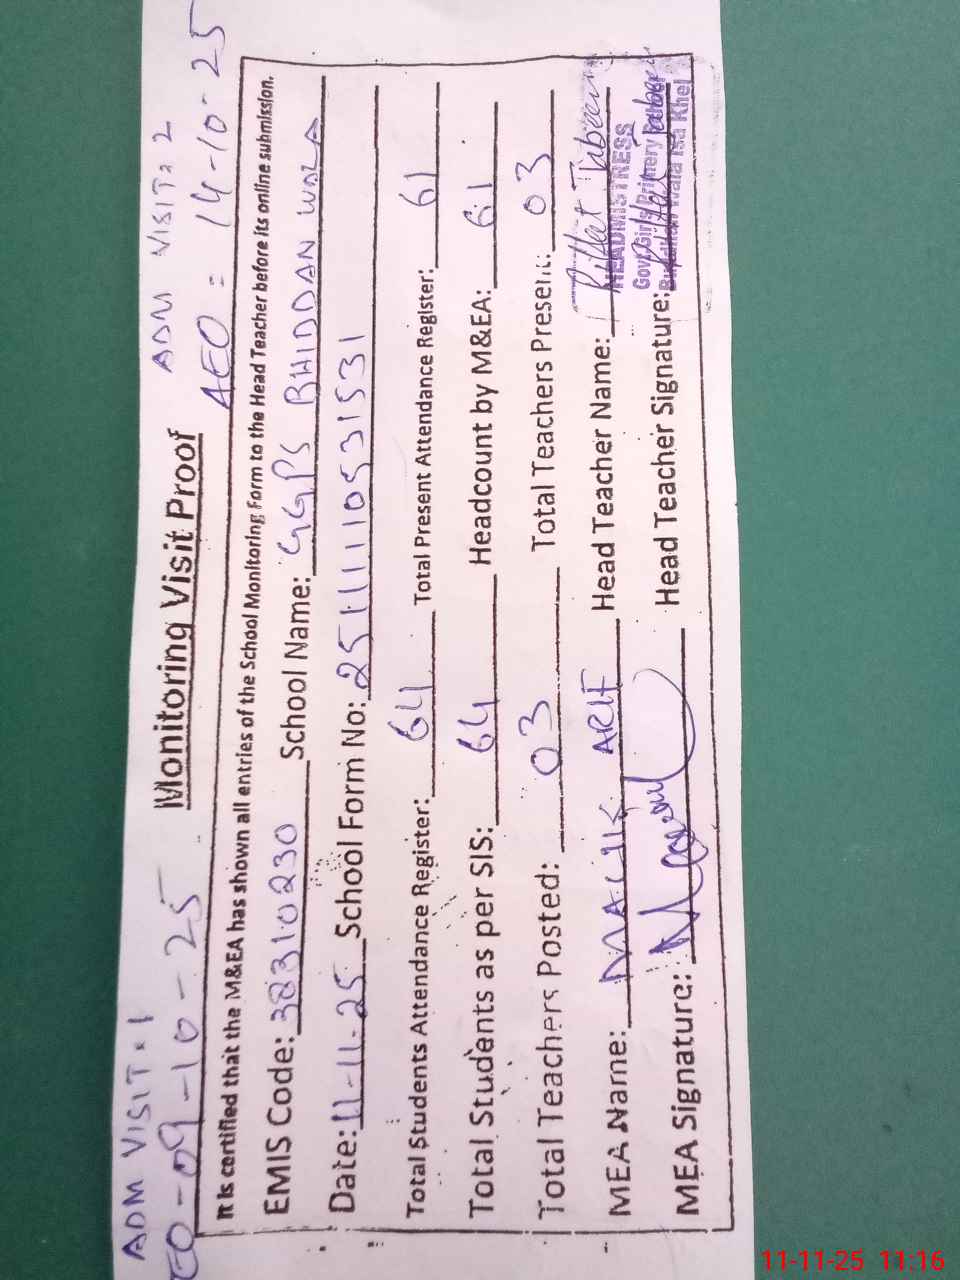 ADM VISIT=1
ADM VISIT=2
EO-09-10-25
Monitoring Visit Proof
AEO = 14-10-25
It is certified that the M&EA has shown all entries of the School Monitoring Form to the Head Teacher before its online submission.
EMIS Code: 38310230 School Name: GGPS BHIDDAN WALA
Date: 11-11-25 School Form No: 25111110531531
Total Students Attendance Register: 64 Total Present Attendance Register: 61
Total Students as per SIS: 64 Headcount by M&EA: 61
Total Teachers Posted: 03 Total Teachers Present: 03
MEA Name: MALIK ARIF Head Teacher Name: Riffat Jabeen
HEADMISTRESS
Govt. Girls Primery School
Wala Isa Khel
MEA Signature: Head Teacher Signature: Riffat Jabeen
11-11-25 11:16